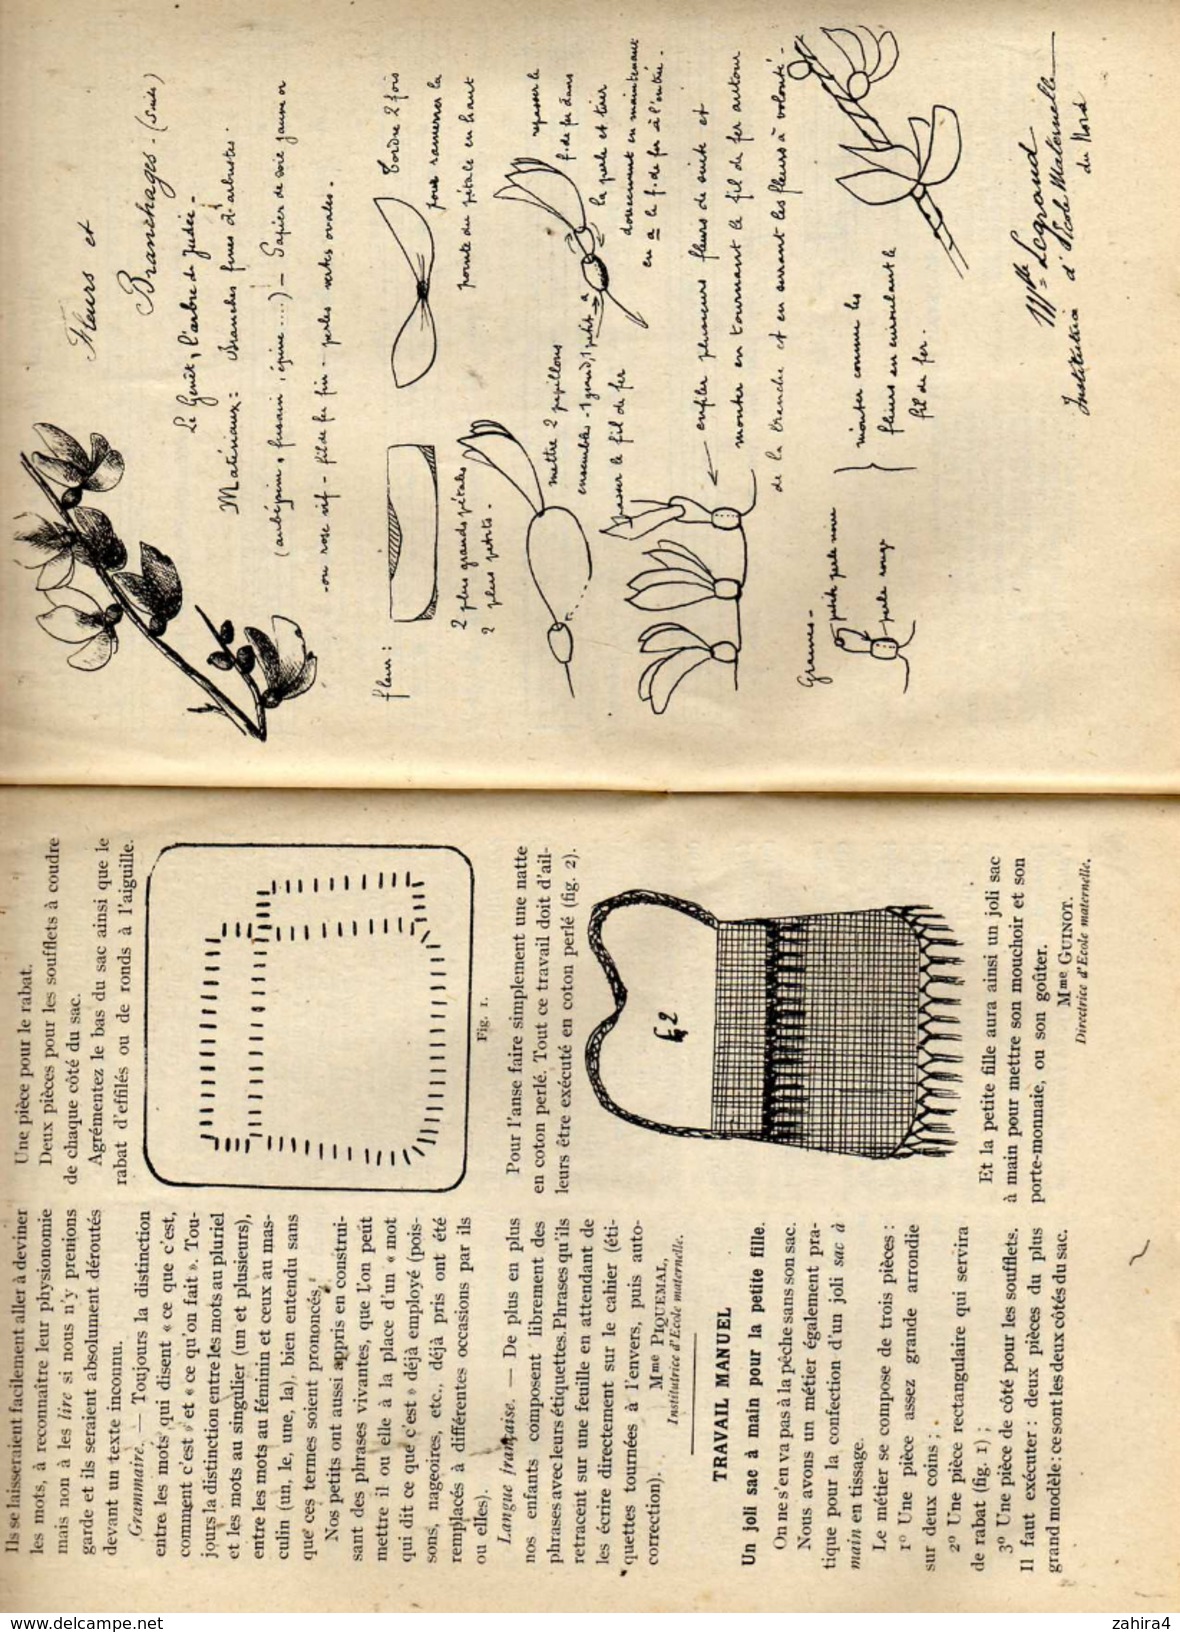 Ils se laisseraient facilement aller à deviner
les mots, à reconnaître leur physionomie
mais non à les lire si nous n'y prenions
garde et ils seraient absolument déroutés
devant un texte inconnu.
Grammaire. — Toujours la distinction
entre les mots qui disent « ce que c'est,
comment c'est » et « ce qu'on fait ». Tou-
jours la distinction entre les mots au pluriel
et les mots au singulier (un et plusieurs),
entre les mots au féminin et ceux au mas-
culin (un, le, une, la), bien entendu sans
que ces termes soient prononcés.
Nos petits ont aussi appris en construi-
sant des phrases vivantes, que l'on peut
mettre il ou elle à la place d'un « mot
qui dit ce que c'est » déjà employé (pois-
sons, nageoires, etc., déjà pris ont été
remplacés à différentes occasions par ils
ou elles).
Langue française. — De plus en plus
nos enfants composent librement des
phrases avec leurs étiquettes. Phrases qu'ils
retracent sur une feuille en attendant de
les écrire directement sur le cahier (éti-
quettes tournées à l'envers, puis auto-
correction).
Mme PIQUEMAL,
Institutrice d'Ecole maternelle.
TRAVAIL MANUEL
Un joli sac à main pour la petite fille.
On ne s'en va pas à la pêche sans son sac.
Nous avons un métier également pra-
tique pour la confection d'un joli sac à
main en tissage.
Le métier se compose de trois pièces :
1º Une pièce assez grande arrondie
sur deux coins ;
2º Une pièce rectangulaire qui servira
de rabat (fig. 1) ;
3º Une pièce de côté pour les soufflets.
Il faut exécuter : deux pièces du plus
grand modèle : ce sont les deux côtés du sac.
Une pièce pour le rabat.
Deux pièces pour les soufflets à coudre
de chaque côté du sac.
Agrémentez le bas du sac ainsi que le
rabat d'effilés ou de ronds à l'aiguille.
Fig. 1.
Pour l'anse faire simplement une natte
en coton perlé. Tout ce travail doit d'ail-
leurs être exécuté en coton perlé (fig. 2).
f. 2
Et la petite fille aura ainsi un joli sac
à main pour mettre son mouchoir et son
porte-monnaie, ou son goûter.
Mme GUINOT.
Directrice d'Ecole maternelle.
Fleurs et
Branchages - (suite)
Le Genêt, l'arbre de Judée -
Matériaux : Branches fines d'arbustes.
(aubépine, fusain, épine ....) - Papier de soie jaune or
- ou rose vif - fil de fer fin - perles vertes ovales.
fleur :
Tordre 2 fois
pour ramener la
pointe du pétale en haut
2 plus grands pétales
2 plus petits -
mettre 2 papillons
ensemble - 1 grand, 1 petit
passer le fil de fer
repasser le
f. de fer dans
la perle et tirer
doucement en maintenant
en a le f. de fer à l'entrée.
a
enfiler plusieurs fleurs de suite et
monter en tournant le fil de fer autour
de la branche et en serrant les fleurs à volonté -
Graines -
petite perle noire
perle rouge
monter comme les
fleurs en enroulant le
fil de fer.
Mlle Legrand
Institutrice d'Ecole Maternelle
du Nord
www.delcampe.net
zahira4